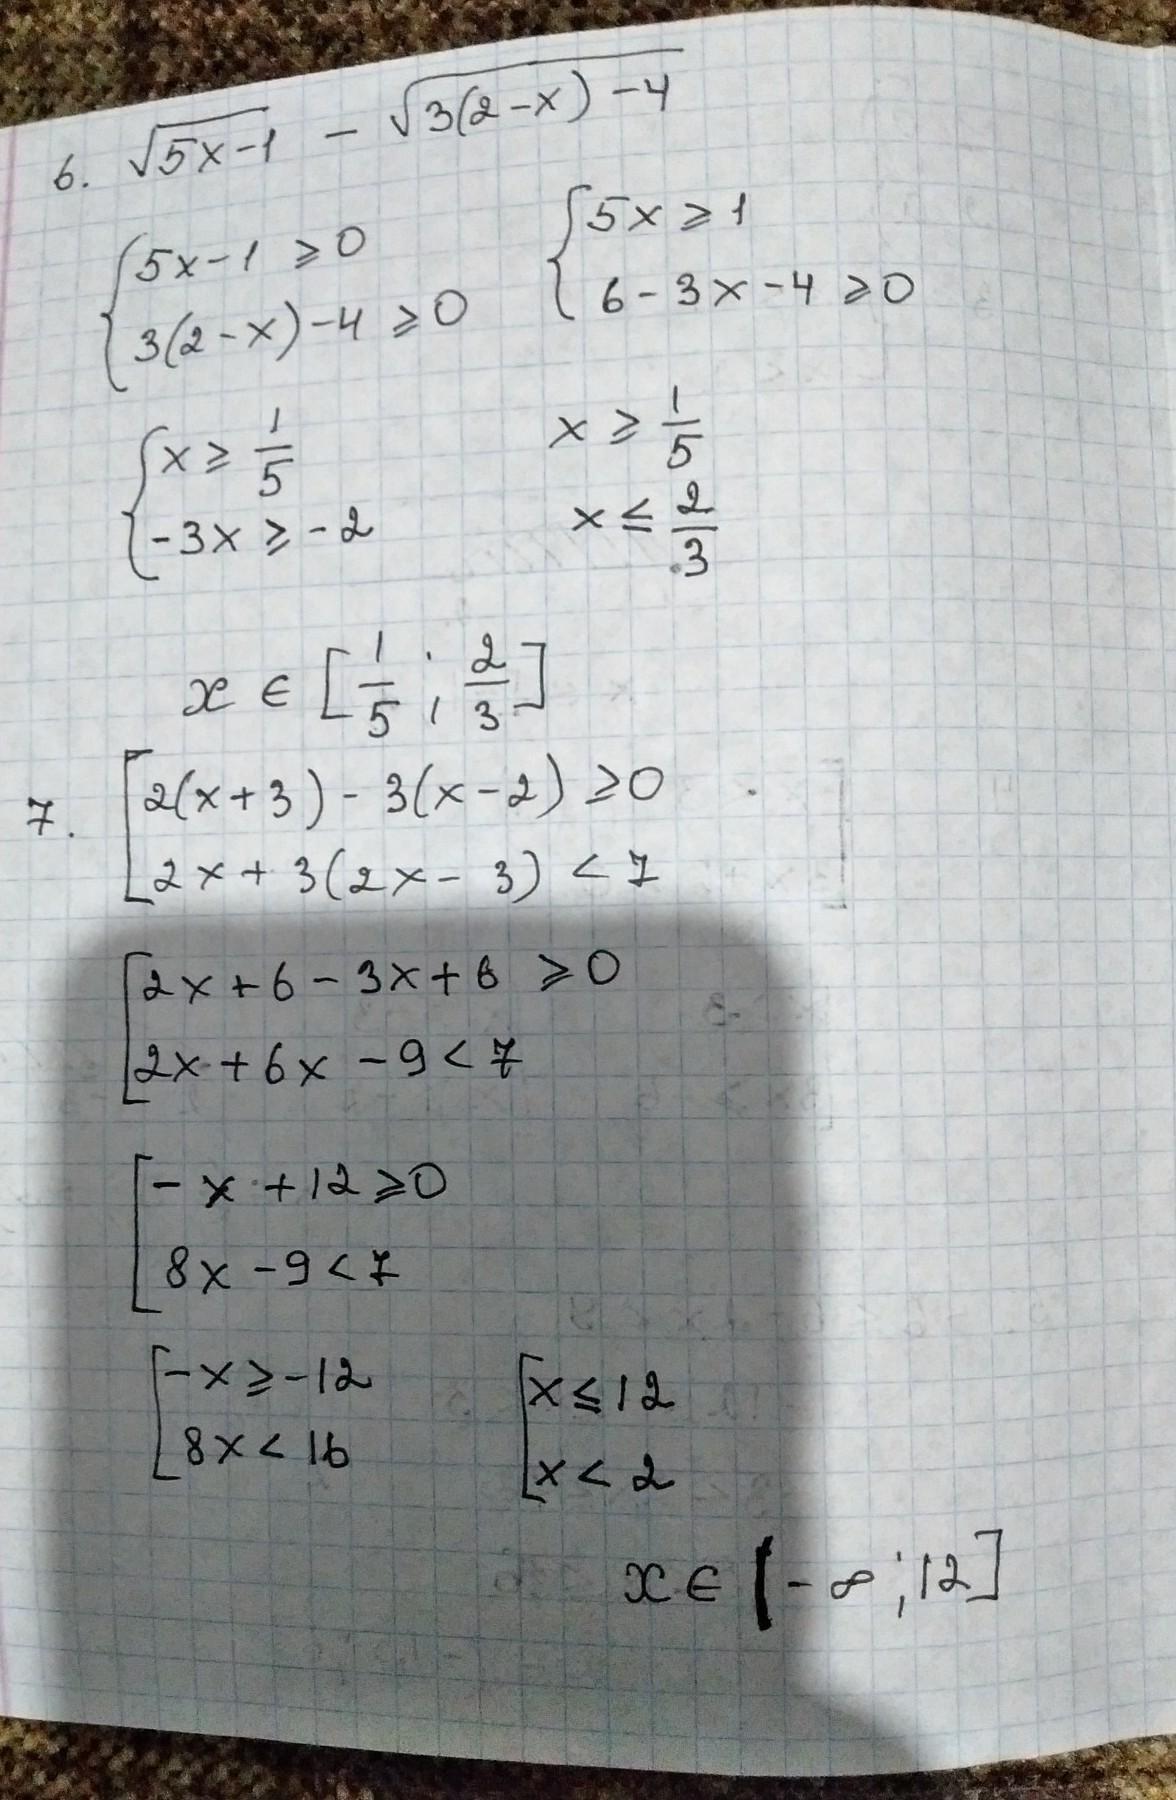 6. √5x-1 - √3(2-x)-4
{5x-1 ≥ 0 {5x ≥ 1
3(2-x)-4 ≥ 0 6-3x-4 ≥ 0
{x ≥ 1/5 x ≥ 1/5
-3x ≥ -2 x ≤ 2/3
x ∈ [1/5 ; 2/3]
7. [2(x+3) - 3(x-2) ≥ 0
2x + 3(2x - 3) < 7
[2x + 6 - 3x + 6 ≥ 0
2x + 6x - 9 < 7
[-x + 12 ≥ 0
8x - 9 < 7
[-x ≥ -12 [x ≤ 12
8x < 16 x < 2
x ∈ [-∞ ; 12]